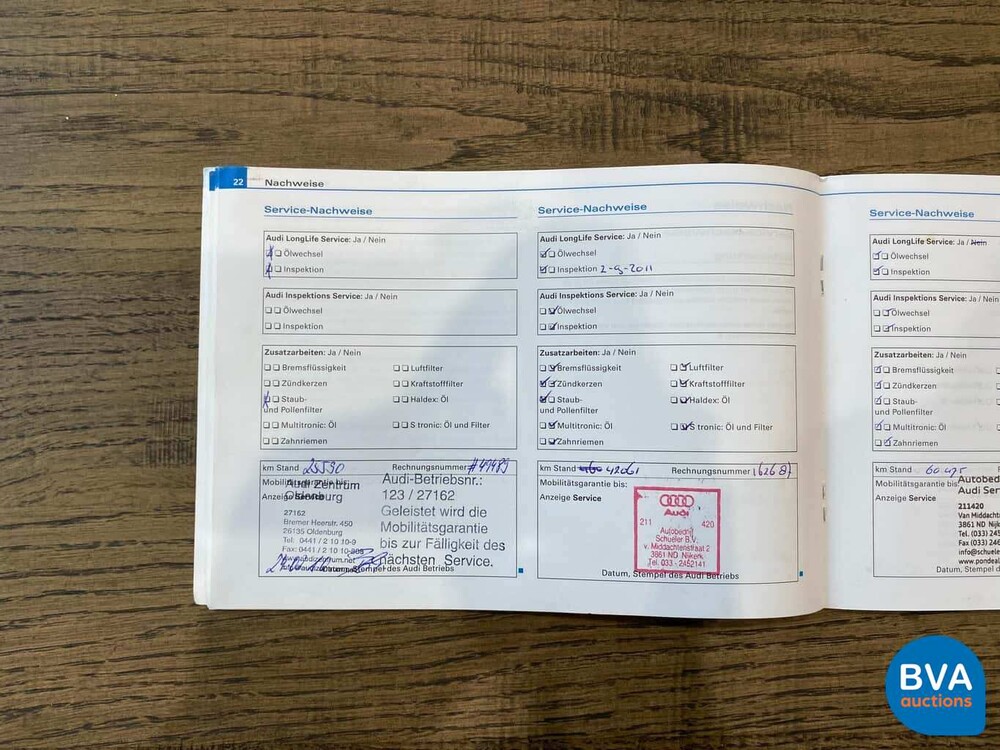 22 Nachweise
Service-Nachweise
Audi LongLife Service: Ja / Nein
Ölwechsel
Inspektion
Audi Inspektions Service: Ja / Nein
Ölwechsel
Inspektion
Zusatzarbeiten: Ja / Nein
Bremsflüssigkeit Luftfilter
Zündkerzen Kraftstofffilter
Staub- Haldex: Öl
und Pollenfilter
Multitronic: Öl S tronic: Öl und Filter
Zahnriemen
km Stand Rechnungsnummer
Mobilitätsgarantie bis:
Anzeige Service
Audi Zentrum
Oldenburg
27162
Bremer Heerstr. 450
26135 Oldenburg
Tel: 0441 / 2 10 10-9
Audi-Betriebsnr.:
123 / 27162
Geleistet wird die
Mobilitätsgarantie
bis zur Fälligkeit des
nächsten Service.
Datum, Stempel des Audi Betriebs
Service-Nachweise
Audi LongLife Service: Ja / Nein
Ölwechsel
Inspektion 2-9-2011
Audi Inspektions Service: Ja / Nein
Ölwechsel
Inspektion
Zusatzarbeiten: Ja / Nein
Bremsflüssigkeit Luftfilter
Zündkerzen Kraftstofffilter
Staub- Haldex: Öl
und Pollenfilter
Multitronic: Öl S tronic: Öl und Filter
Zahnriemen
km Stand 42061 Rechnungsnummer
Mobilitätsgarantie bis:
Anzeige Service
Audi
211 420
Autobedrijf
Schueler B.V.
v. Middachtenstraat 2
3861 ND Nijkerk
Tel. 033 - 2452141
Datum, Stempel des Audi Betriebs
Service-Nachweise
Audi LongLife Service: Ja / Nein
Ölwechsel
Inspektion
Audi Inspektions Service: Ja / Nein
Ölwechsel
Inspektion
Zusatzarbeiten: Ja / Nein
Bremsflüssigkeit
Zündkerzen
Staub-
und Pollenfilter
Multitronic: Öl
Zahnriemen
km Stand
Mobilitätsgarantie bis:
Anzeige Service
Autobed
Audi Ser
211420
Van Middachte
3861 ND Nijk
Tel. (033) 245
Fax (033) 246
info@schuele
www.pondeal
Datum, Stempel d
BVA
auctions